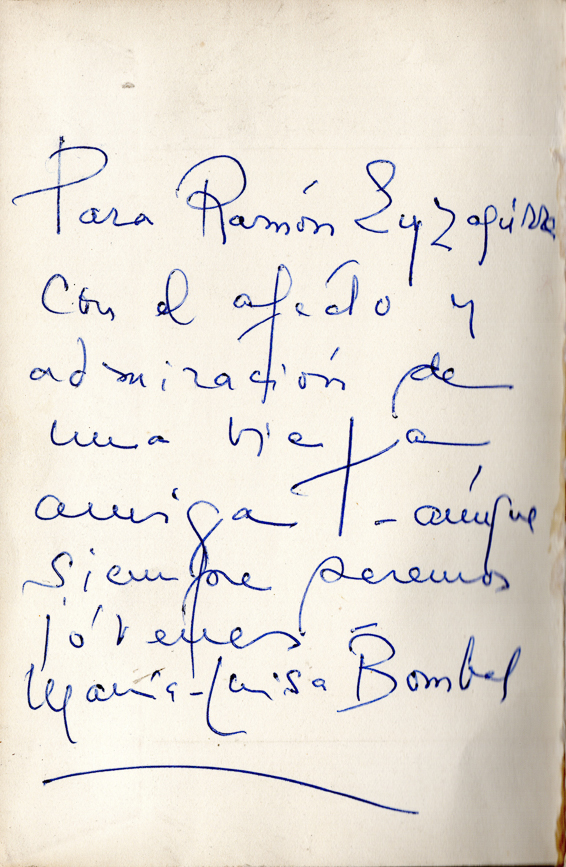 Para Ramón Eyzaguirre
Con el afecto y
admiración de
una vieja
amiga - aúnque
siempre seremos
jóvenes
María-Luisa Bombal